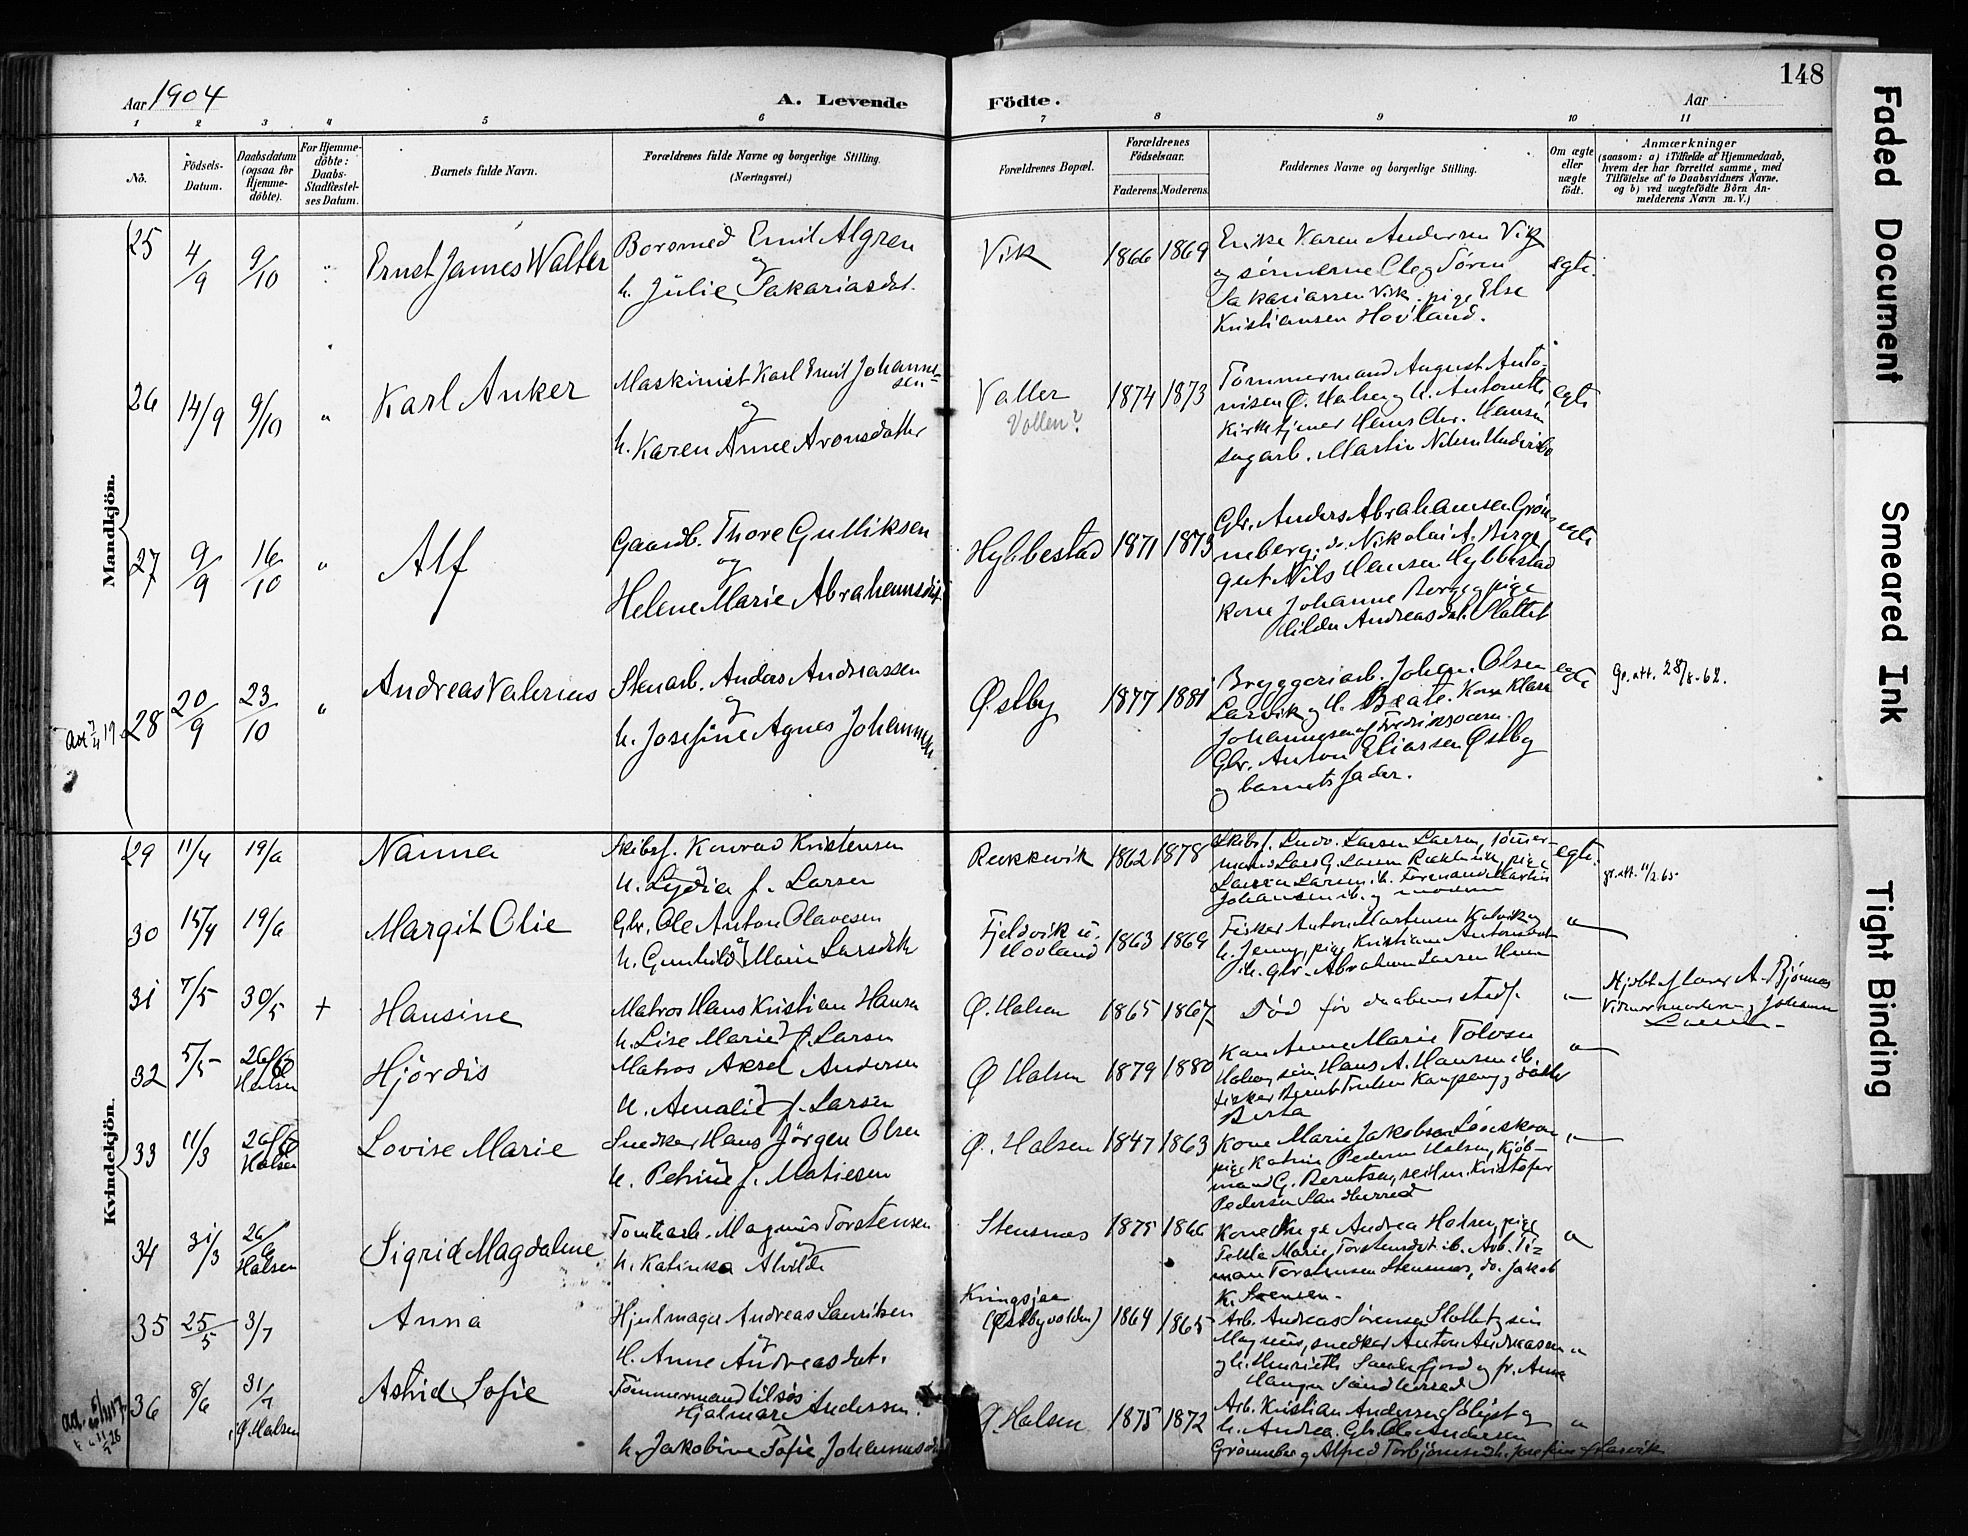 148
Aar 1904
A. Levende
Födte.
Aar
1 2 3 4 5 6 7 8 9 10 11
No.
Födsels-Datum.
Daabsdatum (ogsaa for Hjemme-döbte).
For Hjemme-döbte: Daabs-Stadfæstel-ses Datum.
Barnets fulde Navn.
Forældrenes fulde Navne og borgerlige Stilling. (Næringsvei.)
Forældrenes Bopæl.
Forældrenes Födselsaar.
Faderens. Moderens.
Faddernes Navne og borgerlige Stilling.
Om ægte eller uægte födt.
Anmærkninger
(saasom: a) i Tilfælde af Hjemmedaab,
hvem der har forrettet samme, med
Tilföielse af to Daabsvidners Navne.
og b) ved uægtefödte Börn An-
melderens Navn m. V.)
Mandkjön.
25 4/9 9/10 " Ernst James Walter
Borsmed Emil Algren
og
h. Julie Sakariasdat.
Vik 1866 1869
Enke Karen Andersen Vik
og sönnerne Ole og Sören
Sakariassen Vik, pige Else
Kristiansen Hovland.
egte.
26 14/9 9/10 " Karl Anker
Maskinist Karl Emil Johanne-
sen
og
h. Karen Anne Aronsdatter
Valler
Vollen?
1874 1873
Tömmermand August Anto-
nisen Ö. Halsen og h. Antonette
Kirketjener Hans Chr. Hansen
sagarb. Martin Nilsen
egte
27 9/9 16/10 " Alf
Gaardb. Thore Gulliksen
og
Helene Marie Abrahamsdat.
Hybbestad 1871 1873
Gbr. Anders Abrahamsen Grön-
neberg, do. Nikolai A. Berge
gut Nils Hansen Hybbestad
kone Johanne Berge og pige
Hilda Andreasdat. Slottet
egte
28 20/9 23/10 " Andreas Valerius
Stenarb. Anders Andreassen
og
h. Josefine Agnes Johannesen.
Østby 1877 1881
Bryggeriarb. Johan Olsen
Larvik og h. Beate. Kone Klara
Johannesen af Fredriksværn.
Gbr. Anton Eliassen Østby
og barnets fader.
egte
Kvindekjön.
29 11/4 19/6 Nanna
Skibsf. Konrad Kristensen
og
h. Lydia f. Larsen
Rækkevik 1862 1878
Skibsf. Ludv. Larsen Larsen, tömmer-
mand Lars G. Larsen Rækkevik, pige
Laura Larsen, h.
Johansen ib. og moderen
egte.
30 15/4 19/6 Margit Olie
Gbr. Ole Anton Olavesen
og
h. Gunhild Marie Larsdtr
Fjeldvik u.
Hovland
1863 1869
Fisker Anton Martinsen
h. Jenny, pige Kristiane Antonsdat
ib. gbr. Abraham Larsen
"
31 7/5 30/5 + Hansine
Matros Hans Kristian Hansen
og
h. Lise Marie f. Larsen
Ø. Halsen 1865 1867
Död för daabens stadf.
"
Hjdöbt af lærer A. Bjönnes
Vidner moderen og Johanne
Larsen
32 5/5 26/6 Halsen Hjördis
Matros Aksel Andersen
og
h. Amalie f. Larsen
Ø Halsen 1879 1880
Kone Anne Marie Tolvsen
Halsen, sön Hans A. Hansen ib.
fisker Bernt og datter
Berta
"
33 11/3 26/6 Halsen Lovise Marie
Snedker Hans Jörgen Olsen
og
h. Petrine f. Matiesen
Ø. Halsen 1847 1863
Kone Marie Jakobsen
pige Katrine Pedersen Halsen, Kjöb-
mand G. Berntsen, seilm. Kristofer
Pedersen Sandherred
"
34 31/3 26/6 Halsen Sigrid Magdalene
Tomtearb. Magnus Torstensen
og
h. Katinka Alvilde
Stensnes 1875 1866
Kone Inge Andrea Halsen, pige
Tekla Marie Torstensdat ib. Arb. Ti-
man Torstensen Stensnes, do. Jakob
K. Svensen.
"
35 25/5 3/7 Anna
Hjulmager Andreas Lauritsen
og
h. Anne Andreasdat.
Kringsjaa
(Østbyvolden)
1864 1865
Arb. Andreas Sörensen Slottet og sön
Magnus, snedker Anton Andreasen
og h. Henriette Sandefjord og fr. Anna
Haugen Sandherred
"
36 8/6 31/7 i Ø. Halsen Astrid Sofie
Tömmermand tilsös
Hjalmar Andersen
og
h. Jakobine Sofie Johannesdat
Ø Halsen 1875 1872
Arb. Kristian Andersen Söligst og
h. Andrea. Gbr. Ole Andersen
Grönneberg og Alfred Torbjörnsen
"
Faded Document
Smeared Ink
Tight Binding